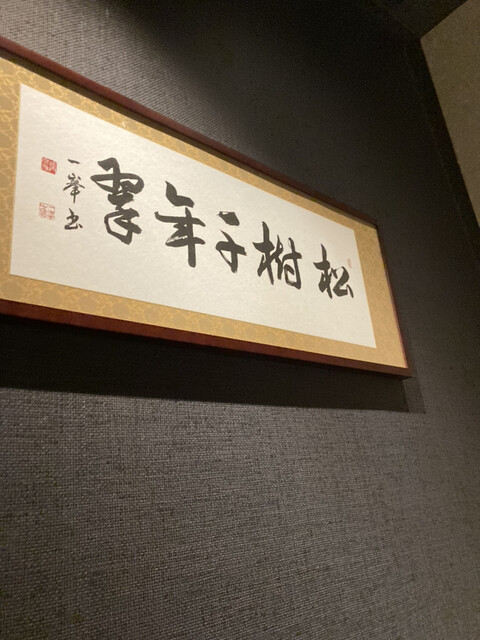 松樹千年翠
一峯書